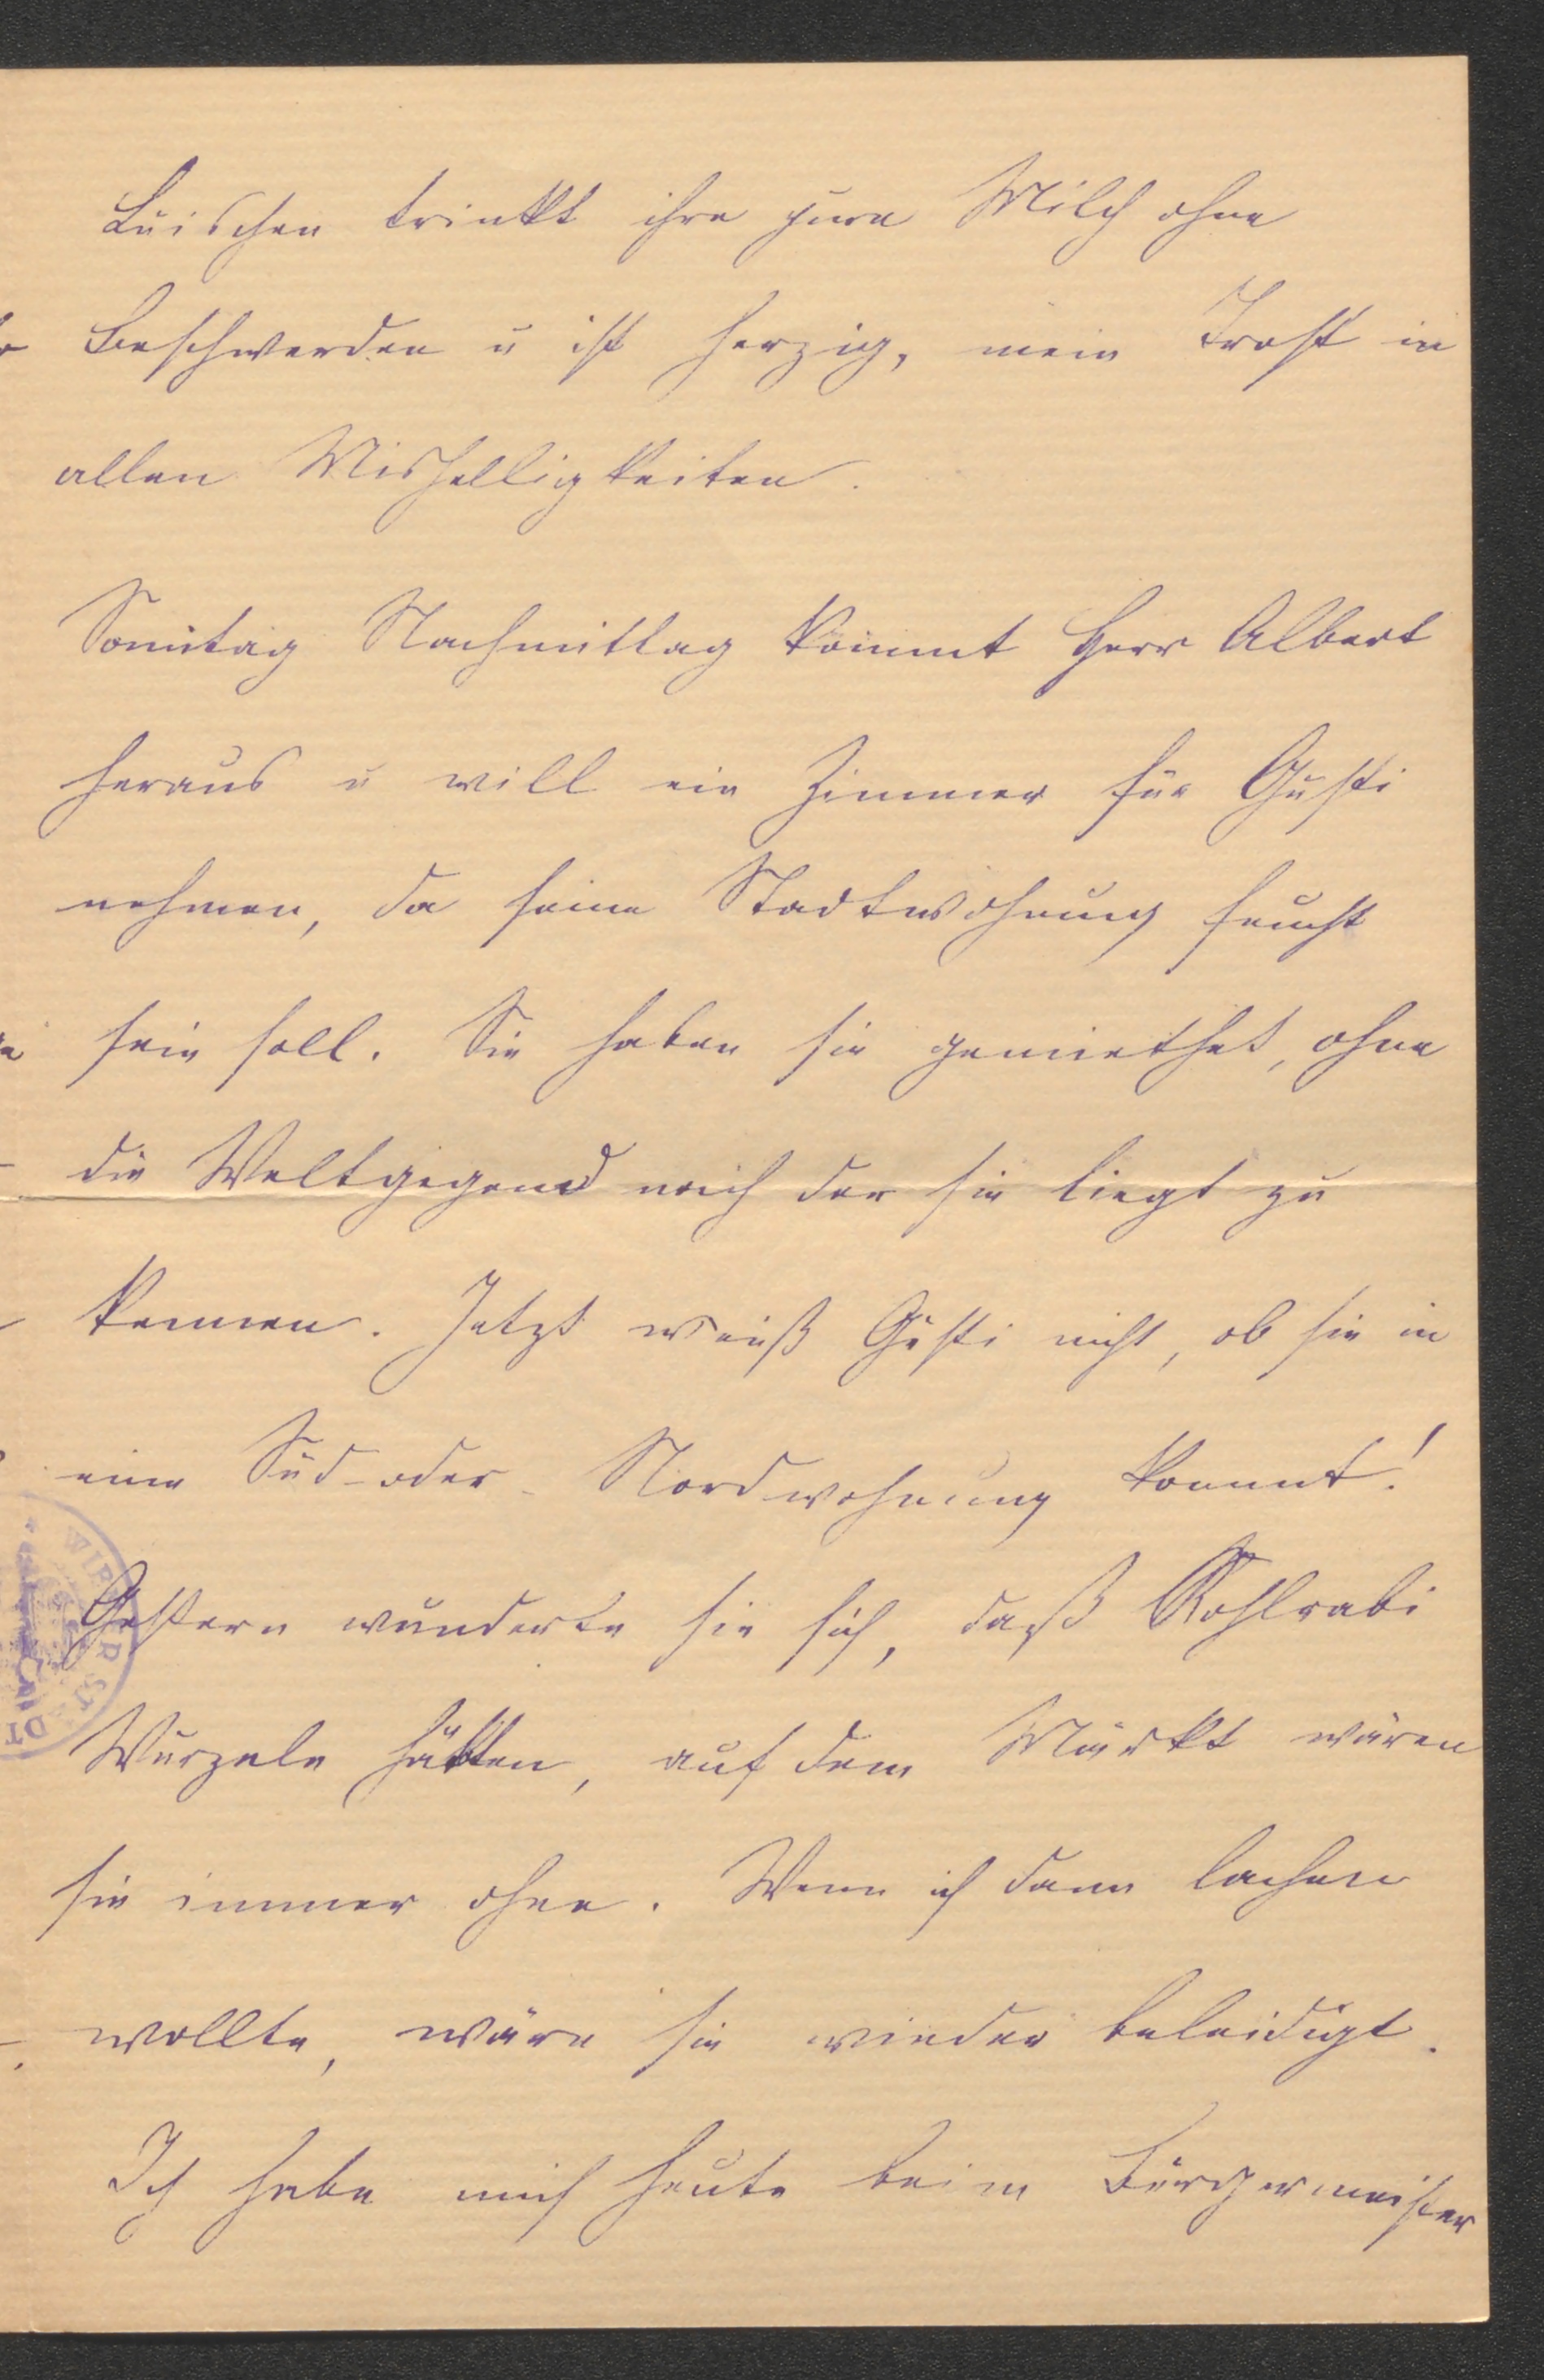 Luischen trinkt ihre pure Milch ohne
Beschwerden u ist herzig, mein Trost in
allen Mishelligkeiten.
Sonntag Nachmittag kommt Herr Albert
heraus u will ein Zimmer für Gusti
nehmen, da seine Stadtwohnung feucht
sein soll. Sie haben sie gemiethet, ohne
die Weltgegend nach der sie liegt zu
kennen. Jetzt weiß Gusti nicht, ob sie in
eine Süd- oder Nordwohnung kommt!
Gestern wunderte sie sich, daß Kohlrabi
Wurzeln hätten, auf dem Markt wären
sie immer ohne. Wenn ich dann lachen
wollte, wäre sie wieder beleidigt.
Ich habe mich heute beim Bürgermeister
WIENER STADT